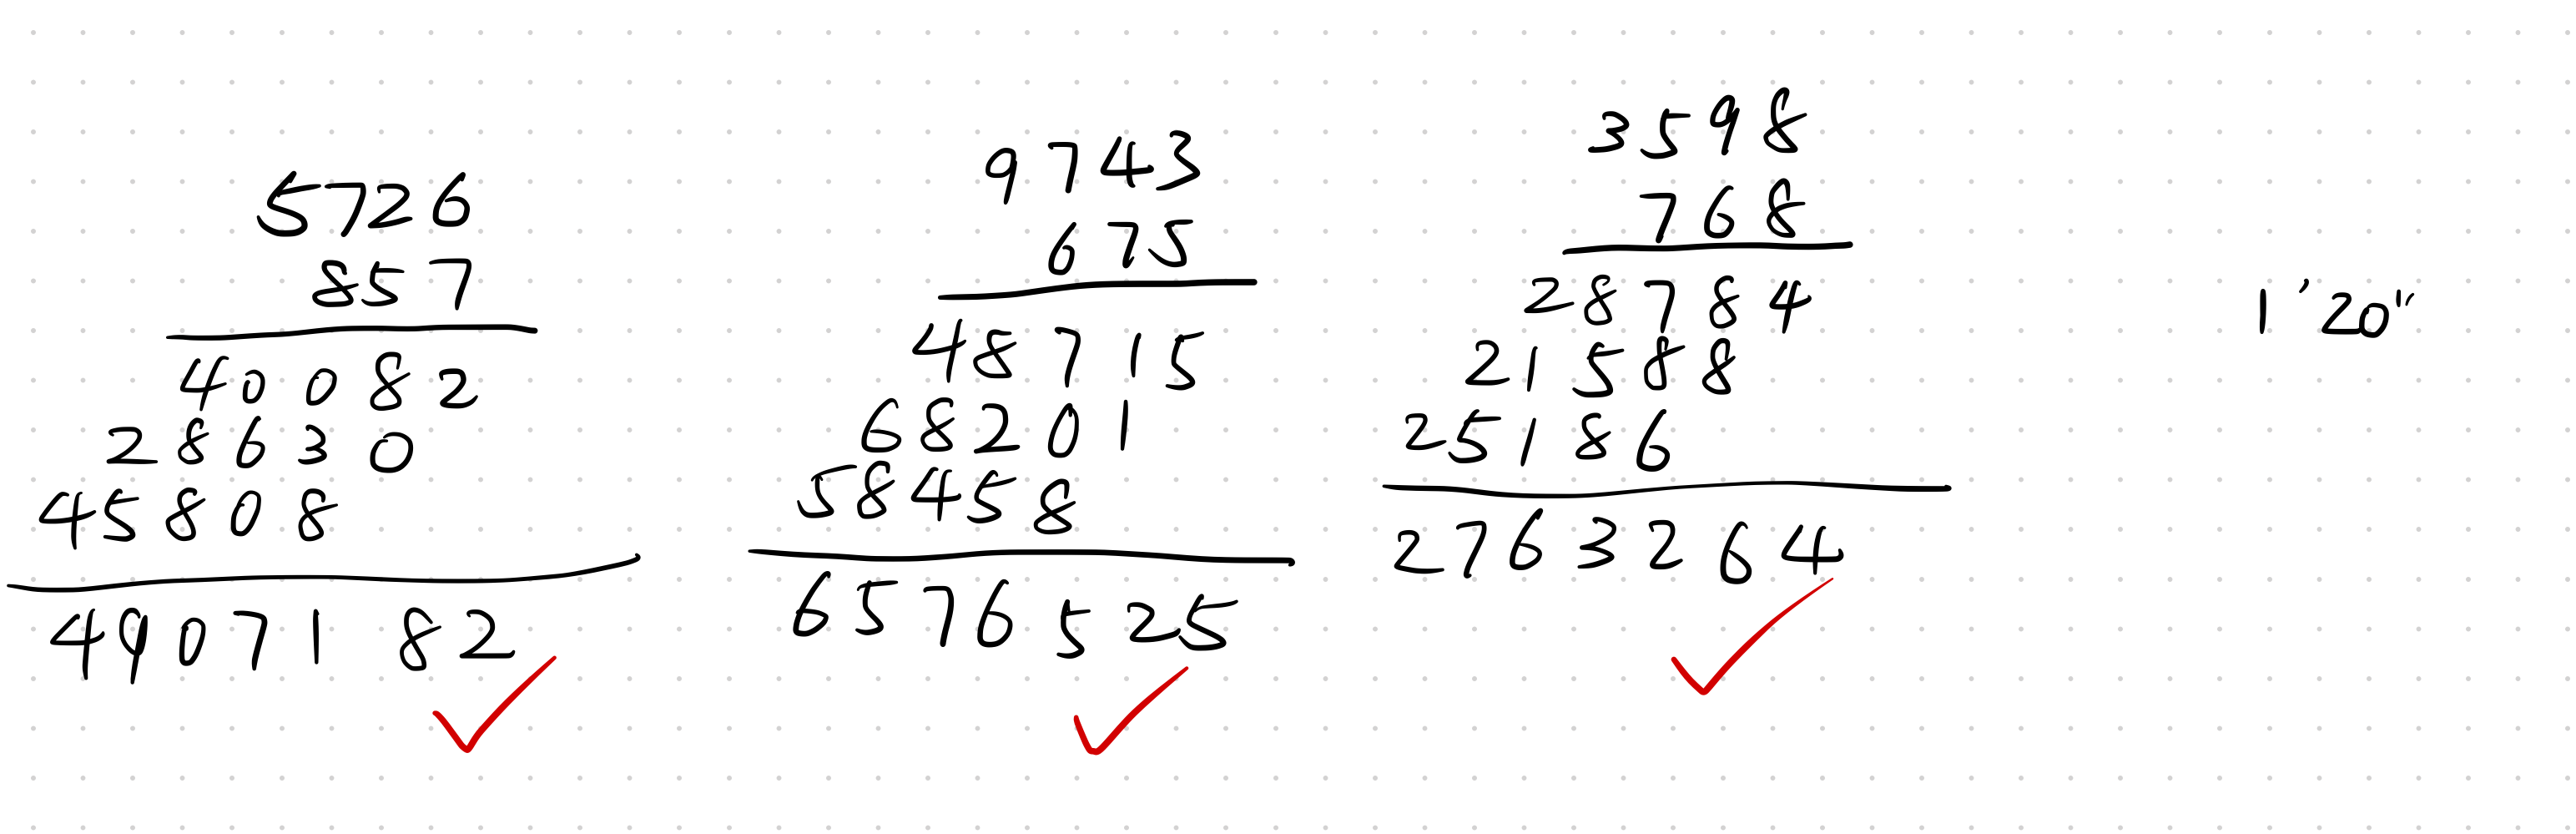 5726
857
40082
28630
45808
4907182
9743
675
48715
68201
58458
6576525
3598
768
28784
21588
25186
2763264
1'20"